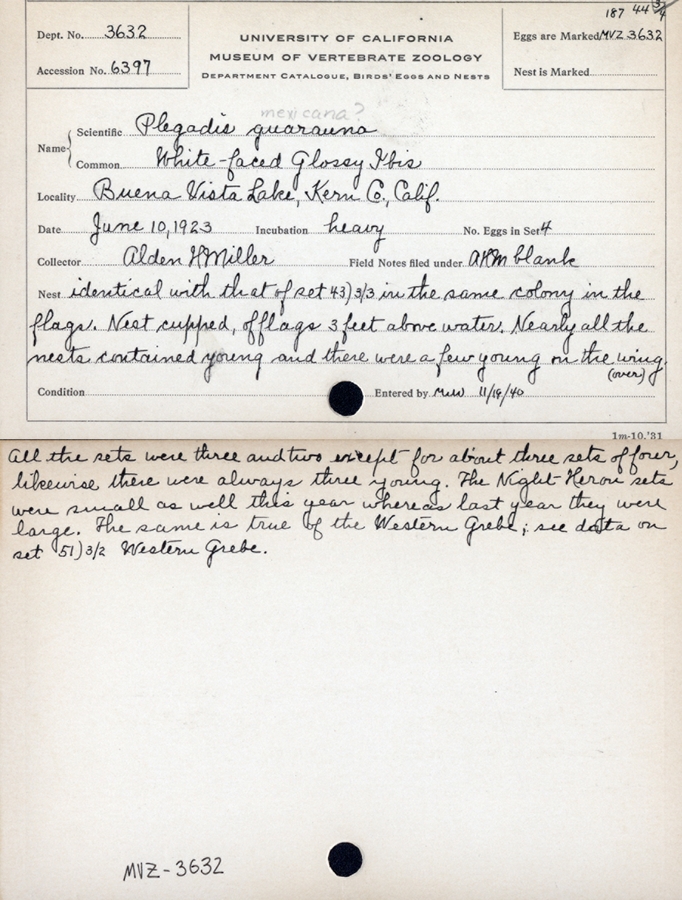 187 44 3/4
Dept. No. 3632
UNIVERSITY OF CALIFORNIA
MUSEUM OF VERTEBRATE ZOOLOGY
DEPARTMENT CATALOGUE, BIRDS' EGGS AND NESTS
Eggs are Marked MVZ 3632
Accession No. 6397
Nest is Marked
mexicana?
Name Scientific Plegadis guarauna
Common White-faced Glossy Ibis
Locality Buena Vista Lake, Kern Co., Calif.
Date June 10, 1923 Incubation heavy No. Eggs in Set 4
Collector Alden H Miller Field Notes filed under AHM blank
Nest identical with that of set 43) 3/3 in the same colony in the
flags. Nest cupped, of flags 3 feet above water. Nearly all the
nests contained young and there were a few young on the wing.
(over)
Condition Entered by 11/19/40
1m-10,'31
All the sets were three and two except for about three sets of four,
likewise there were always three young. The Night-Heron sets
were small as well this year whereas last year they were
large. The same is true of the Western Grebe; see data on
set 51) 3/2 Western Grebe.
MVZ-3632